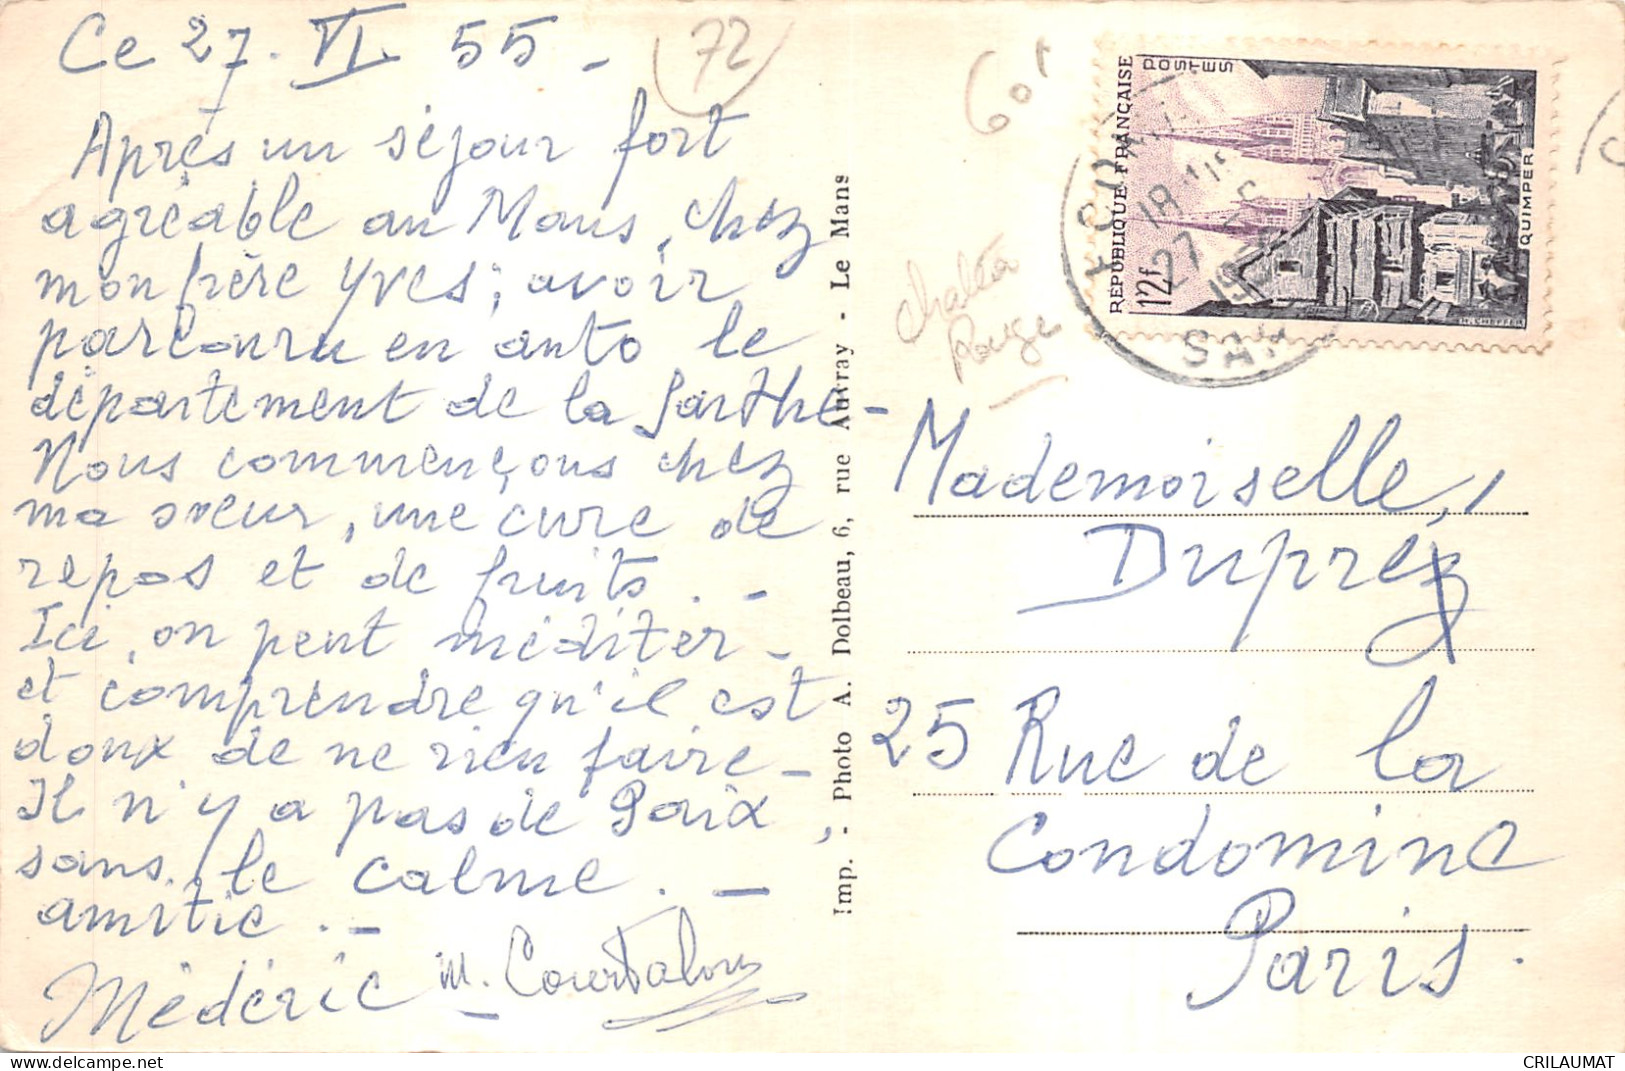 Ce 27. VI. 55 -
72
Après un séjour fort
agréable au Mans, chez
mon frère Yves, avoir
parcouru en auto le
département de la Sarthe -
Nous commençons chez
ma soeur, une cure de
repos et de fruits. -
Ici, on peut méditer -
et comprendre qu'il est
doux de ne rien faire -
Il n'y a pas de Paix,
sans le calme. -
amitié. -
Médéric M. Courtalon
Imp. - Photo A. Dolbeau, 6, rue Auvray - Le Mans
Rouge
RÉPUBLIQUE FRANÇAISE
POSTES
12f
QUIMPER
18
27
Mademoiselle,
Duprez
25 Rue de la
Condamine
Paris.
delcampe.net
CRILAUMAT